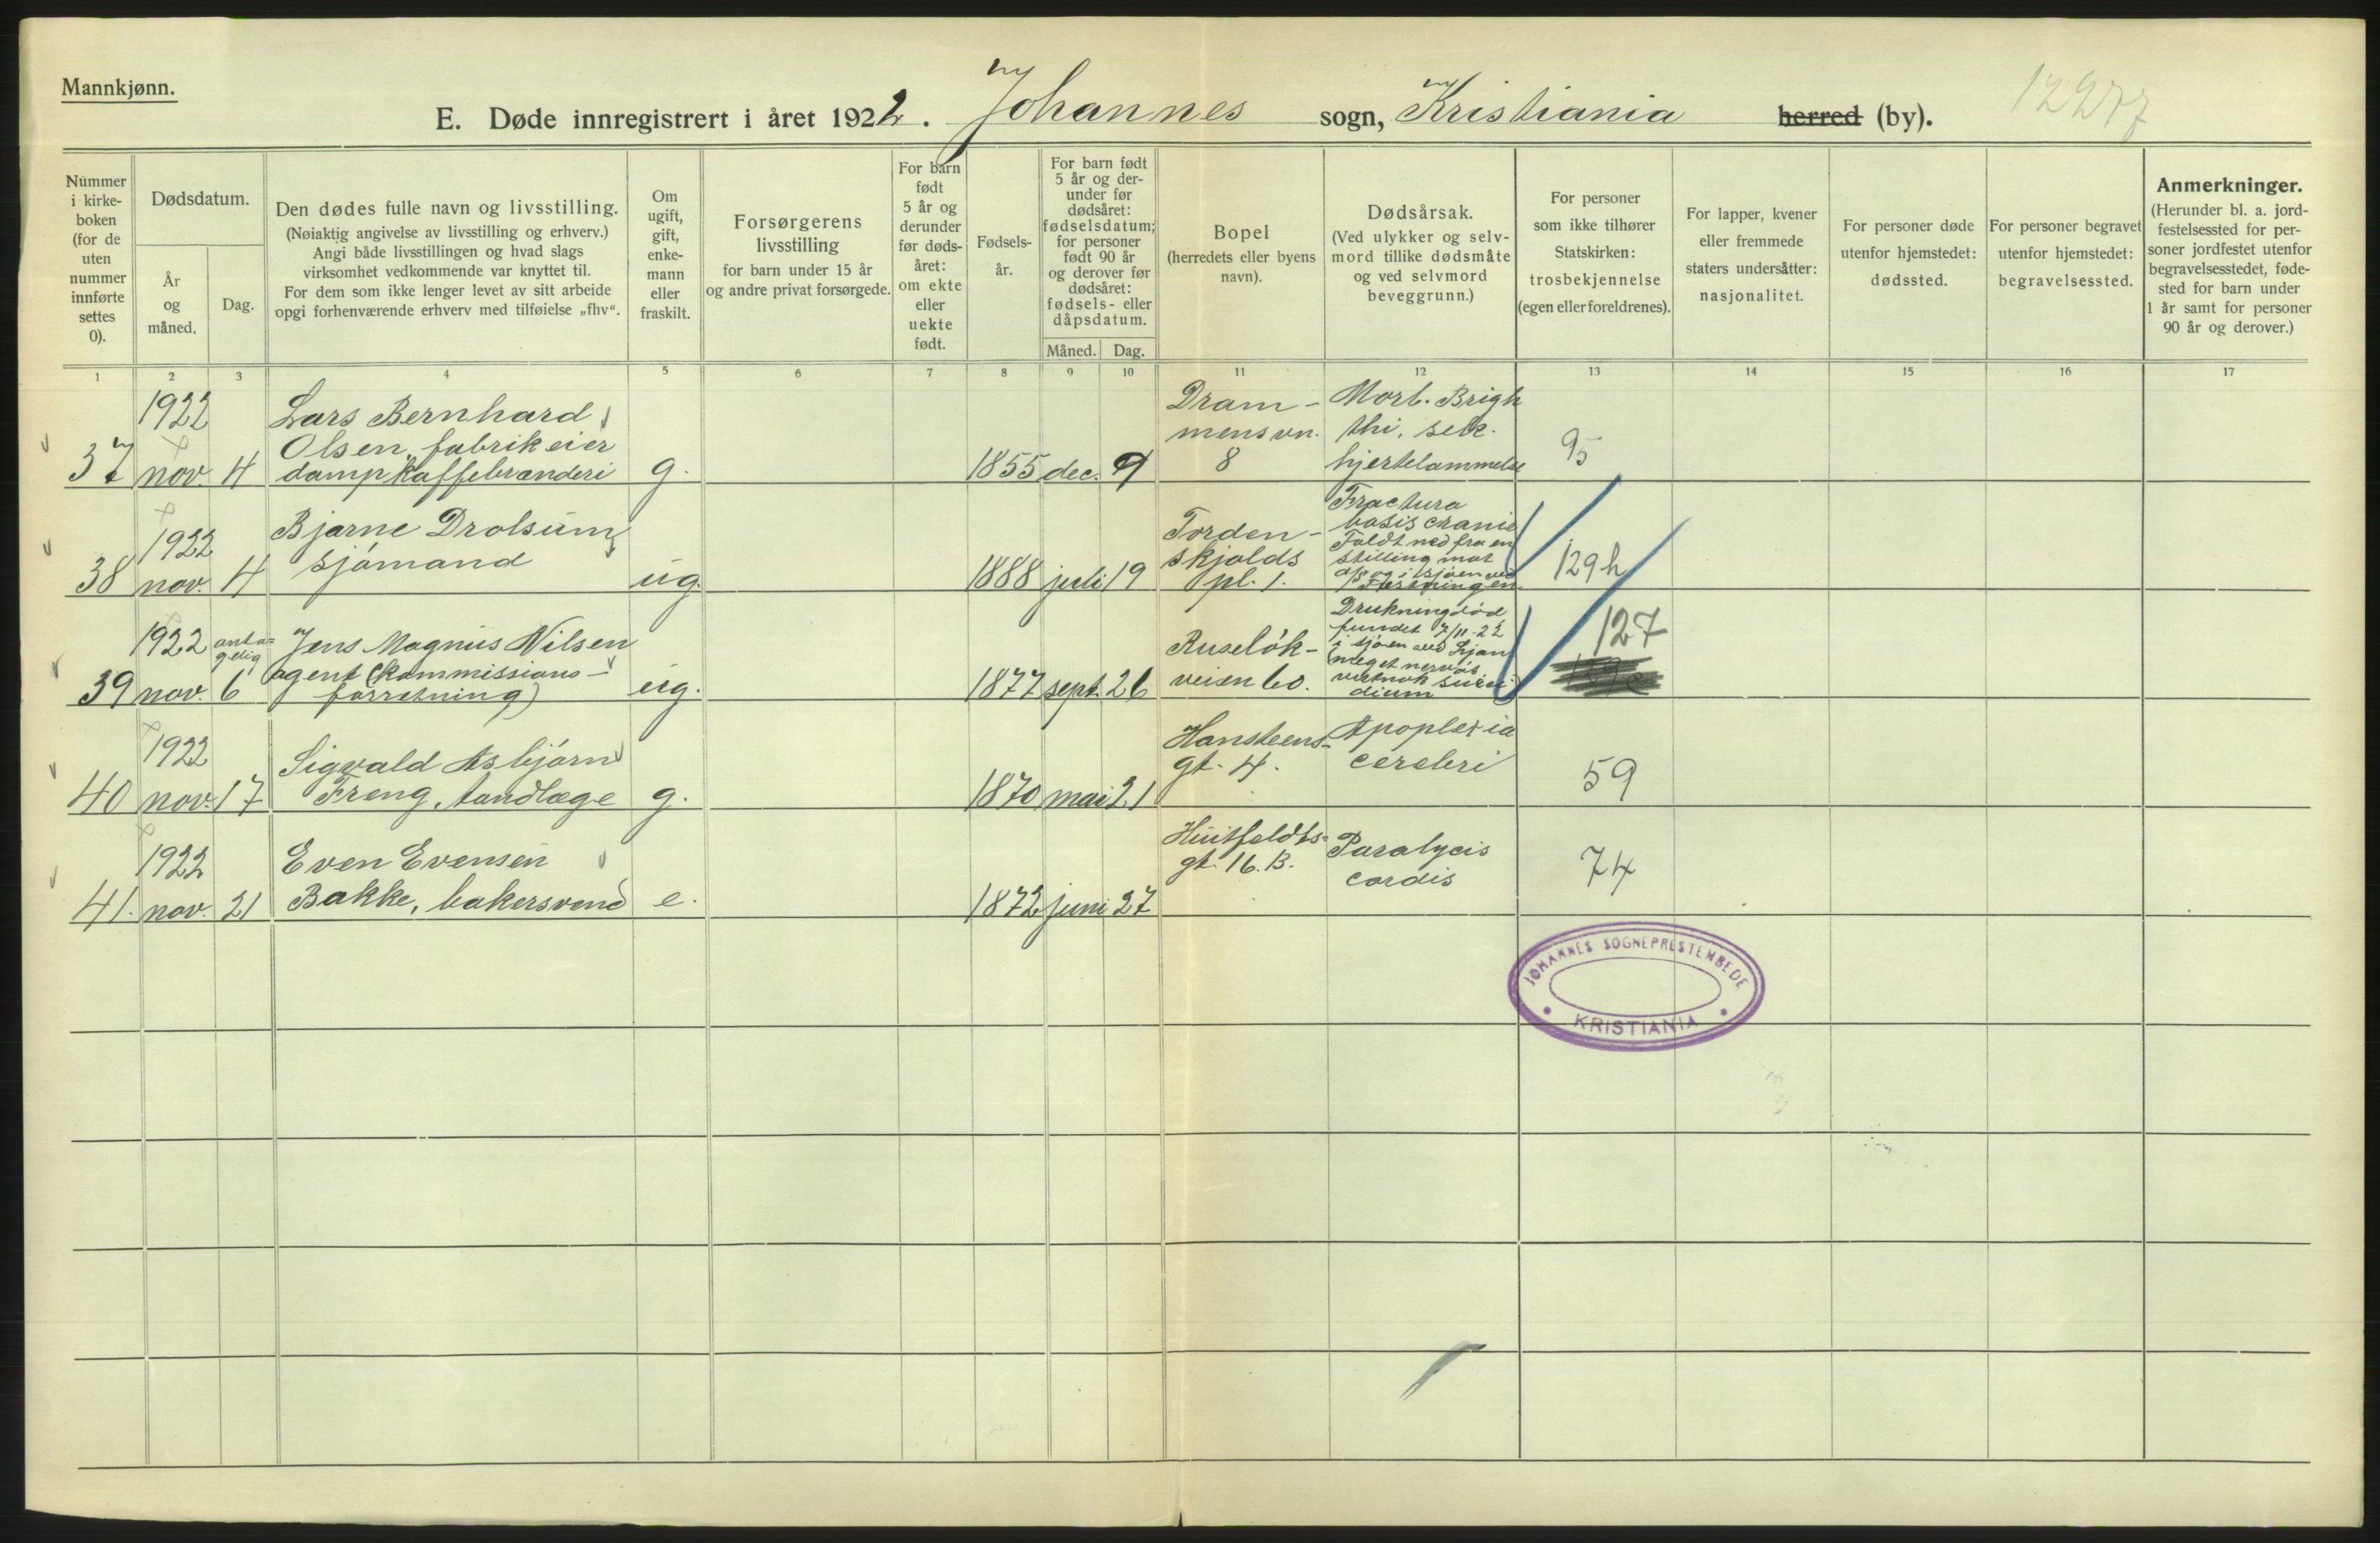 Mannkjønn.
E. Døde innregistrert i året 1922. Johannes sogn, Kristiania herred (by).
Nummer i kirke-boken (for de uten nummer innførte settes 0).
Dødsdatum.
År og måned.
Dag.
Den dødes fulle navn og livsstilling.
(Nøiaktig angivelse av livsstilling og erhverv.)
Angi både livsstillingen og hvad slags
virksomhet vedkommende var knyttet til.
For dem som ikke lenger levet av sitt arbeide
opgi forhenværende erhverv med tilføielse „fhv“.
Om
ugift,
gift,
enke-
mann
eller
fraskilt.
Forsørgerens
livsstilling
for barn under 15 år
og andre privat forsørgede.
For barn
født
5 år og
derunder
før døds-
året:
om ekte
eller
uekte
født.
Fødsels-
år.
For barn født
5 år og der-
under før
dødsåret:
fødselsdatum;
for personer
født 90 år
og derover før
dødsåret:
fødsels- eller
dåpsdatum.
Måned. Dag.
Bopel
(herredets eller byens
navn).
Dødsårsak.
(Ved ulykker og selv-
mord tillike dødsmåte
og ved selvmord
beveggrunn.)
For personer
som ikke tilhører
Statskirken:
trosbekjennelse
(egen eller foreldrenes).
For lapper, kvener
eller fremmede
staters undersåtter:
nasjonalitet.
For personer døde
utenfor hjemstedet:
dødssted.
For personer begravet
utenfor hjemstedet:
begravelsessted.
Anmerkninger.
(Herunder bl. a. jord-
festelsessted for per-
soner jordfestet utenfor
begravelsesstedet, føde-
sted for barn under
1 år samt for personer
90 år og derover.)
1 2 3 4 5 6 7 8 9 10 11 12 13 14 15 16 17
37 1922 nov. 4
Lars Bernhard
Olsen, fabrikeier
dampkaffebrænderi
g.
1855 dec. 9
Dram-
mensvn.
8
Morb. Brigh
thi, sek.
hjertelammelse
95
38 1922 nov. 4
Bjarne Drolsum
sjómand
ug.
1888 juli 19
Torden-
skjolds
pl. 1.
Fractura
basis cranie
Faldt ned fra en
stilling mot
og i sjøen ved
Festningen
129h
39 1922 nov. antagelig 6
Jens Magnus Nilsen
agent (kommissions-
forretning)
ug.
1877 sept. 26
Ruselók-
veien 60.
Drukningdód
fundet 7/11-22
i sjóen ved
meget nervós
dium
127
40 1922 nov. 17
Sigvald Asbjórn
Freng, tandlæge
g.
1870 mai 21
Hansteens-
gt. 4.
Apoplexia
cerebri
59
41. 1922 nov. 21
Even Evensen
Bakke, bakersvend
e.
1872 juni 27
Huitfeldts-
gt. 16. B.
Paralycis
cordis
74
JOHANNES SOGNEPRESTEMBEDE
KRISTIANIA